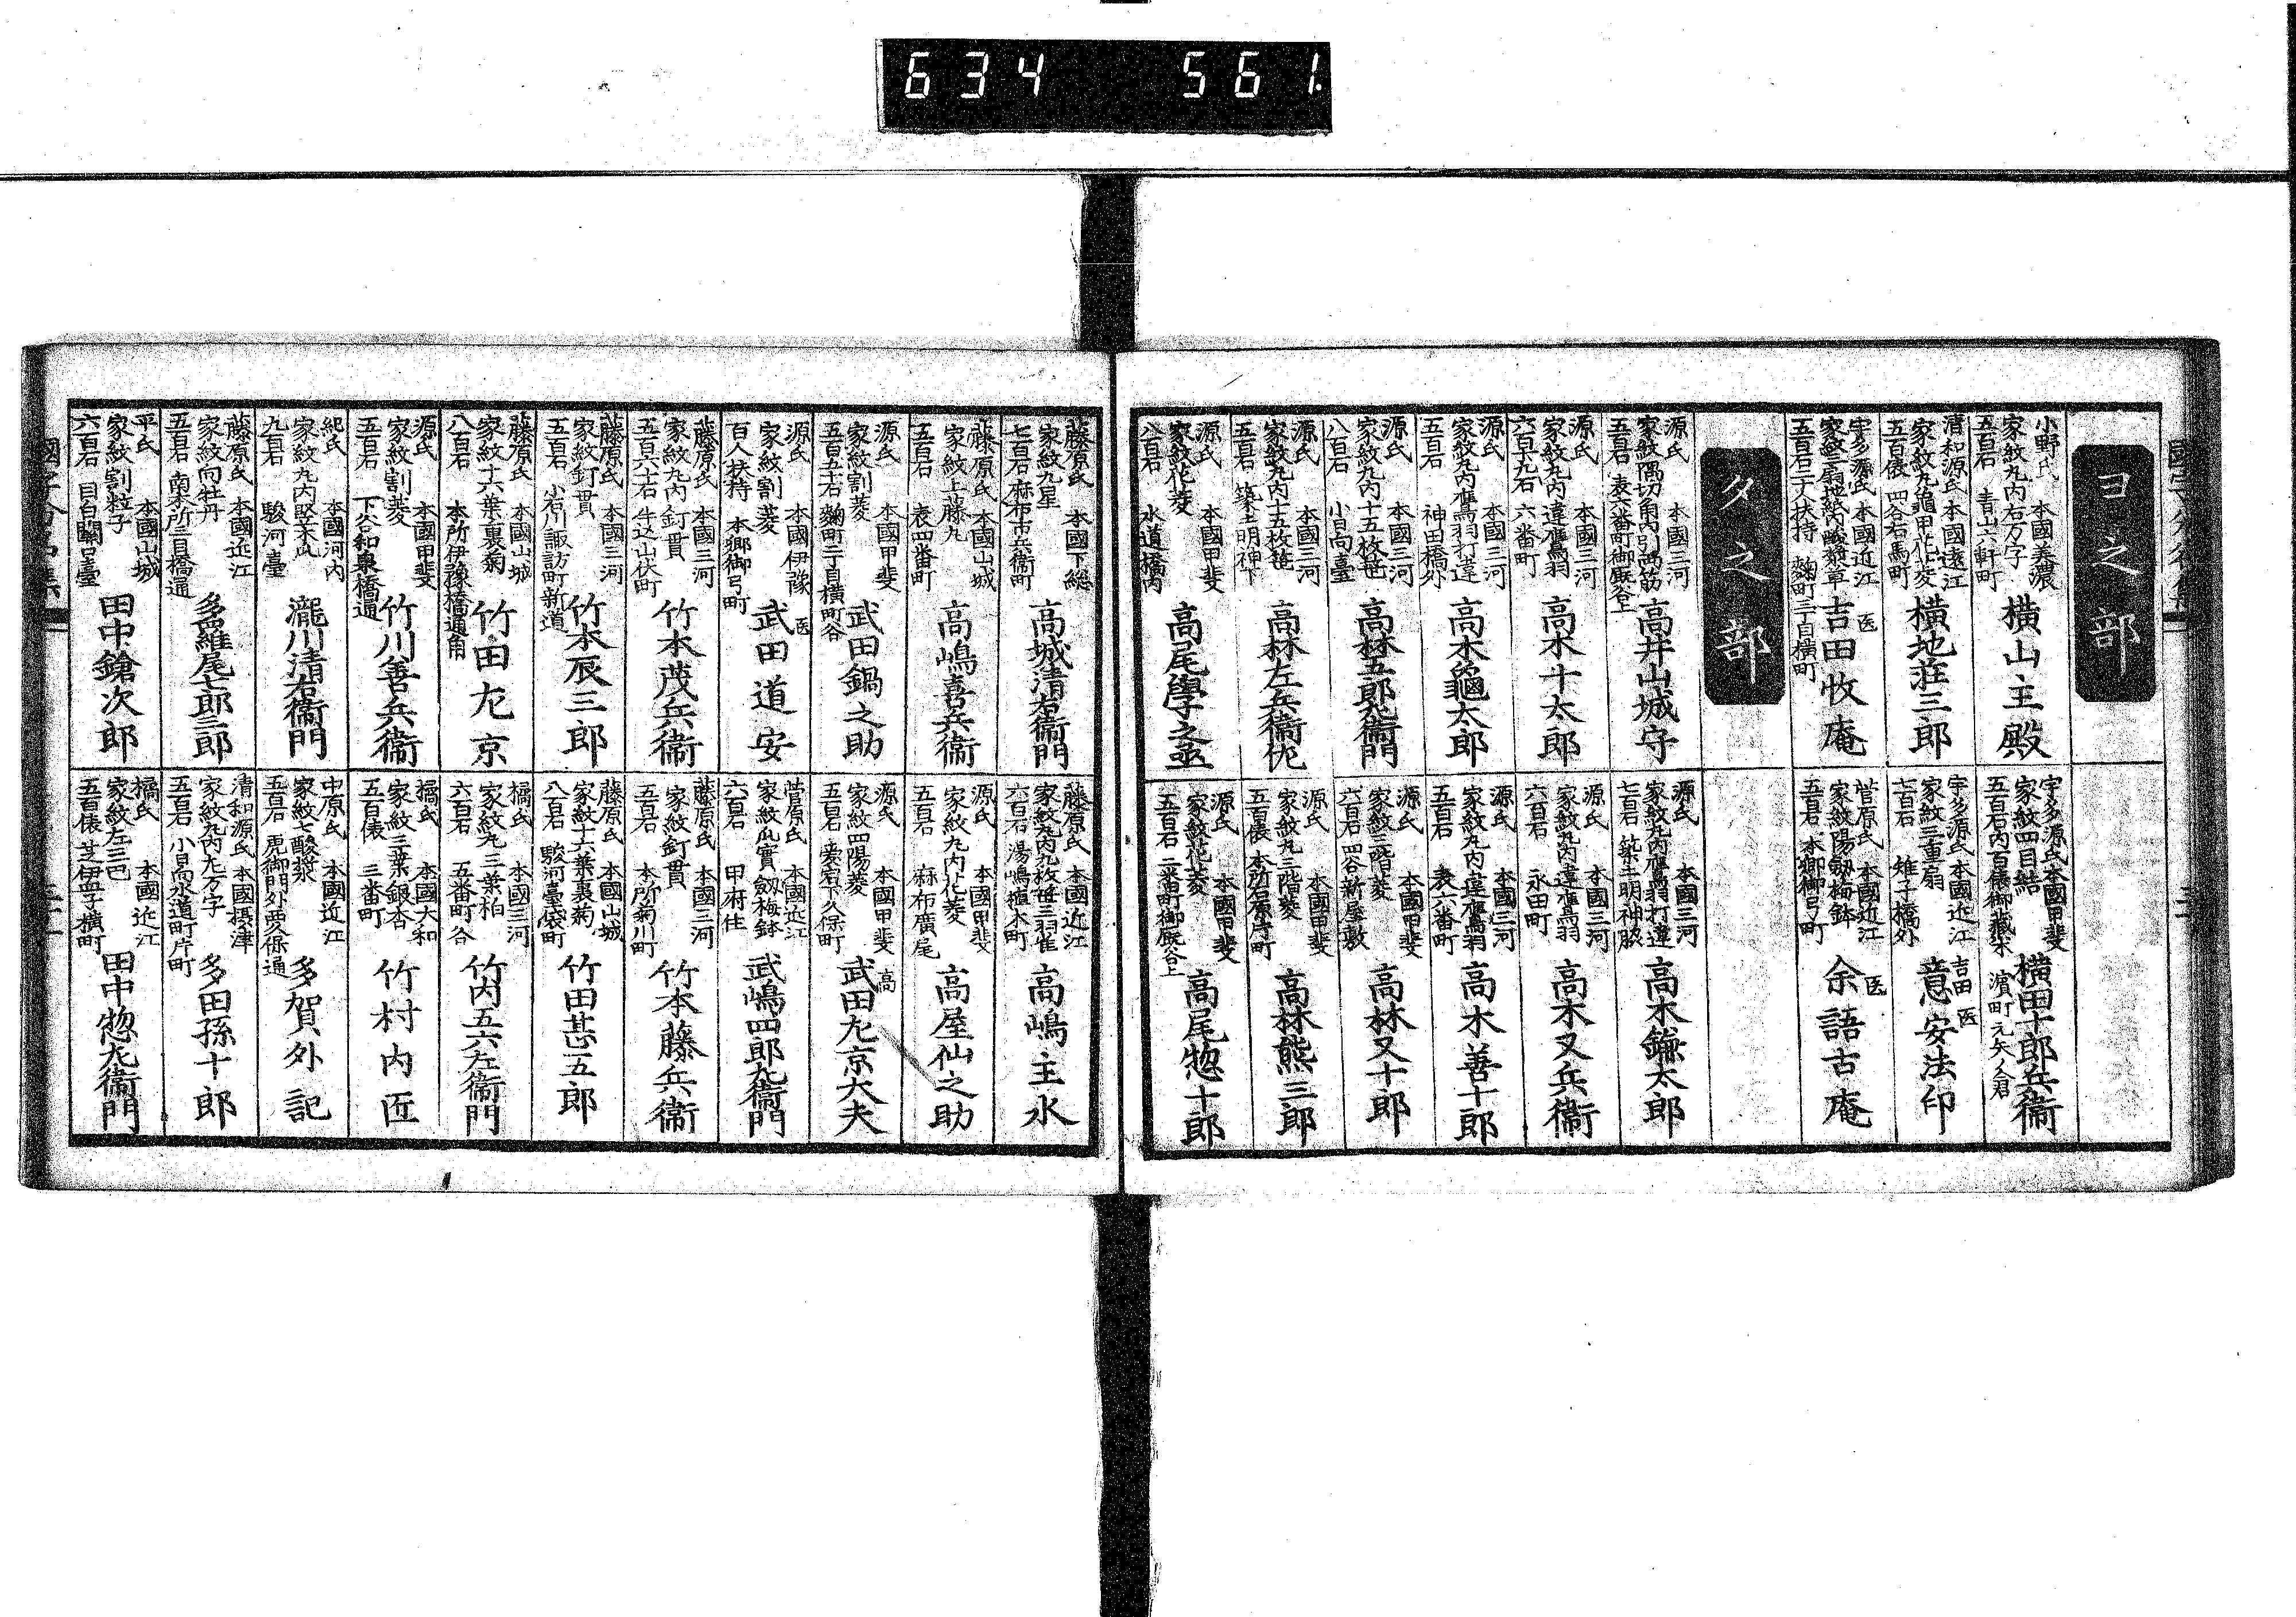 634 561
ヨ之部
小野氏 本國美濃
家紋丸内右万字
五百石 青山六軒町
横山主殿
清和源氏 本國遠江
家紋丸龜甲花菱
五百俵 四谷右馬町
横地荘三郎
宇多源氏 本國近江
五百石二十人扶持 麹町三丁目横町
医
吉田收庵
宇多源氏 本國甲斐
家紋四目結
五百石内百俵御藏米 濵町元矢ノ倉
横田十郎兵衞
宇多源氏 本國近江
家紋三重扇
七百石 雉子橋外
吉田 医
意安法印
菅原氏 本國近江
家紋陽劔梅鉢
五百石 本郷御弓町
医
余語古庵
タ之部
源氏 本國三河
家紋隅切角内引両筋
五百石 表六番町御厩谷上
高井山城守
源氏 本國三河
家紋丸内違鷹羽
六百九石 六番町
高木十太郎
源氏 本國三河
家紋丸内鷹羽打違
五百石 神田橋外
高木龜太郎
源氏 本國三河
家紋丸内十五枚笹
八百石 小日向臺
高林五郎左衞門
源氏 本國三河
家紋丸内十五枚笹
五百石 築土明神下
高林左兵衞佐
源氏 本國甲斐
家紋花菱
八百石 水道橋内
高尾學之丞
源氏 本國三河
家紋丸内鷹羽打違
七百石 築土明神脇
高木鐮太郎
源氏 本國三河
家紋丸内違鷹羽
六百石 永田町
高木又兵衞
源氏 本國三河
家紋丸内違鷹羽
五百石 表六番町
高木善十郎
源氏 本國甲斐
家紋三階菱
六百石 四谷新屋敷
高林又十郎
源氏 本國甲斐
家紋丸三階菱
五百俵 本所石原片町
高林熊三郎
源氏 本國甲斐
家紋花菱
五百石 二番町御厩谷上
高尾惣十郎
藤原氏 本國下総
家紋九星
七百石 麻布市兵衞町
高城清右衞門
藤原氏 本國山城
家紋上藤丸
五百石 表四番町
高嶋喜兵衞
源氏 本國甲斐
家紋割菱
五百五十石 麹町二丁目横町谷
武田鍋之助
源氏 本國伊豫
家紋割菱
百人扶持 本郷御弓町
医
武田道安
藤原氏 本國三河
家紋丸内釘貫
五百六十石 牛込山伏町
竹本茂兵衞
藤原氏 本國三河
家紋釘貫
五百石 小石川諏訪町新道
竹本辰三郎
藤原氏 本國山城
家紋十六葉裏菊
八百石 本所伊豫橋通角
竹田左京
源氏 本國甲斐
家紋割菱
五百石 下谷和泉橋通
竹川善兵衞
紀氏 本國河内
家紋丸内堅木瓜
九百石 駿河臺
瀧川清右衞門
藤原氏 本國近江
家紋向牡丹
五百石 南本所三目橋通
多羅尾七郎三郎
平氏 本國山城
六百石 目白關口臺
田中鎗次郎
藤原氏 本國近江
家紋丸内九枚笹三羽雀
六百石 湯嶋櫃木町
高嶋主水
源氏 本國甲斐
家紋丸内花菱
五百石 麻布廣尾
高屋仙之助
源氏 本國甲斐
家紋四陽菱
高
武田左京大夫
菅原氏 本國近江
家紋瓜實劔梅鉢
六百石 甲府住
武嶋四郎左衞門
藤原氏 本國三河
家紋釘貫
五百石 本所菊川町
竹本藤兵衞
藤原氏 本國山城
家紋十六葉裏菊
八百石 駿河臺袋町
竹田甚五郎
橘氏 本國三河
家紋丸三葉柏
六百石 五番町谷
竹内五六左衞門
橘氏 本國大和
家紋三葉銀杏
五百俵 三番町
竹村内匠
中原氏 本國近江
家紋七酸漿
五百石 虎御門外西久保通
多賀外記
清和源氏 本國摂津
家紋丸内左万字
五百石 小日向水道町片町
多田孫十郎
橘氏 本國近江
家紋左三巴
五百俵 芝伊皿子横町
田中惣左衞門